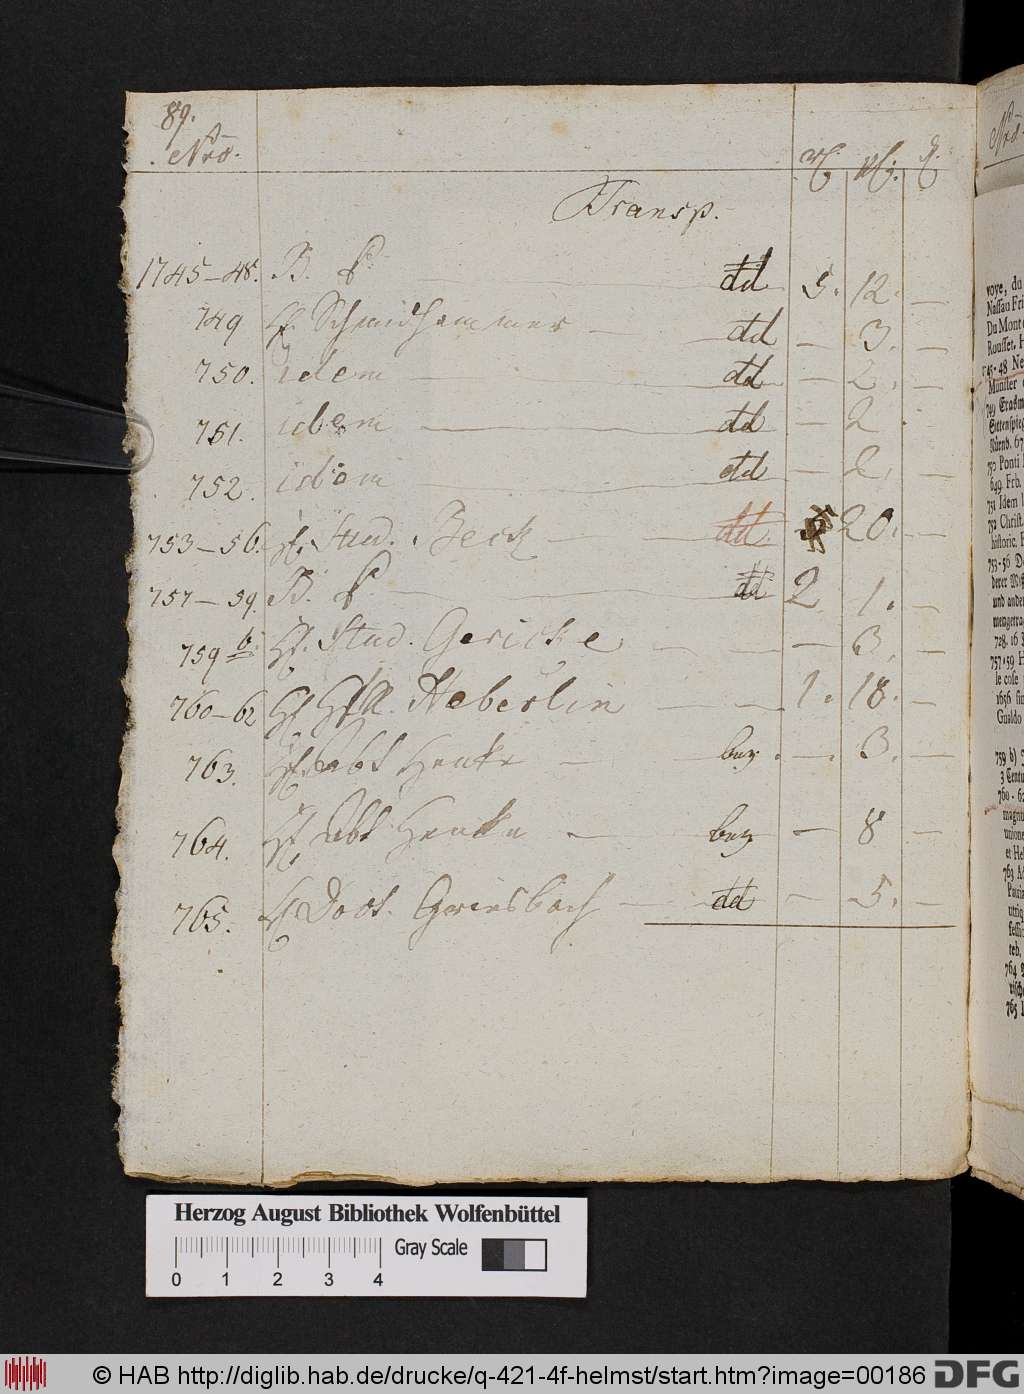 89.
Nro.
Transp.
1745–48. B. P. — dd 5. 12. —
749 H. Schmidhammer — dd — 3. —
750. idem — dd — 2. —
751. idem — dd — 2 .
752. idem — dd — 2. —
753–56. H. Stud. Beck — dd 20. —
757–59. B. P. — dd 2 1. —
759 b. H. Stud. Gericke — — 3. —
760–62 H. Häberlin — 1. 18. —
763. H. Abt Henke bez. — 3. —
764. H. Abt Henke — bez — 8 —
765. H Doct. Griesbach — dd — 5. —
Nro
voye, du
Nassau Fri
Du Mont
Rousset. H
745-48 Ne
Münster
749 Erasm
Sittenspieg
Nürnb. 67
750 Ponti
649. Frb.
751 Idem
752 Christ.
historic. F
753-56 D
derer
und ander
mengetra
728. 16 S
757-59 H
le cose
1656
Gualdo
759 b)
3 Centu
760-62
magni
unione
et He
763 Ad
Patri
utriq
fessi
teb.
764
765
Herzog August Bibliothek Wolfenbüttel
Gray Scale
0 1 2 3 4
© HAB http://diglib.hab.de/drucke/q-421-4f-helmst/start.htm?image=00186 DFG